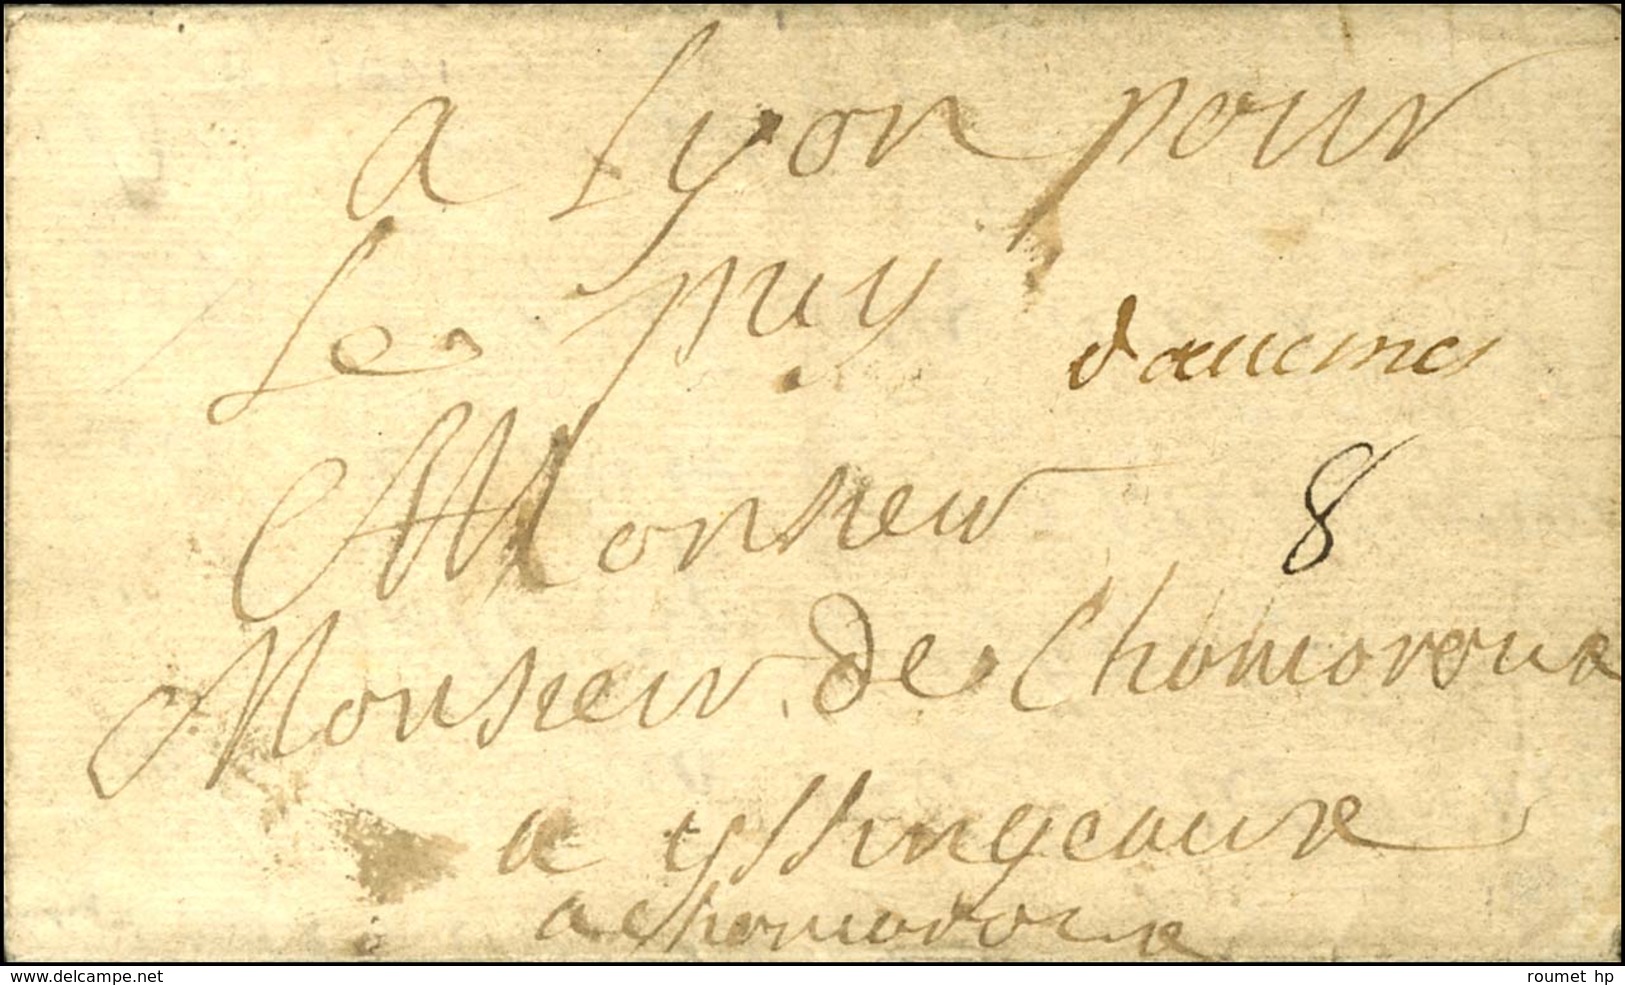 a Lyon pour
Le puy
d'auenes
8
Monsieur
Monsieur de Chomoroux
a yssingeaux
a Chomoroux
delcampe.net
roumet hp